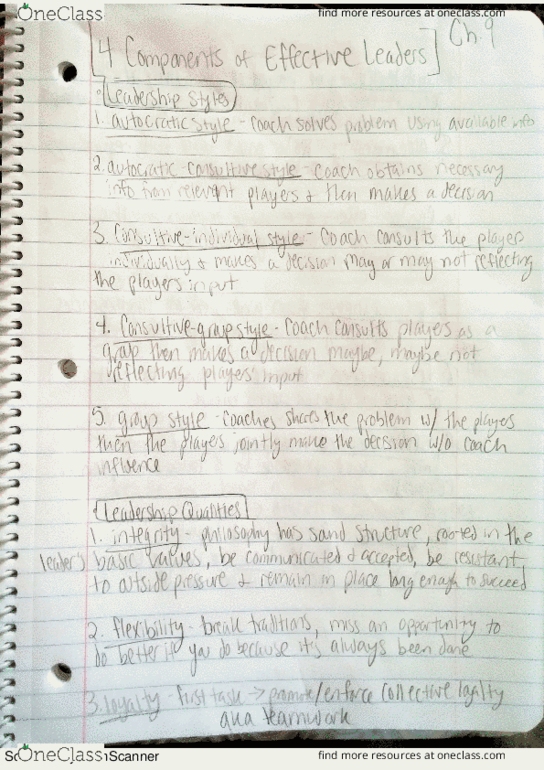 OneClass
find more resources at oneclass.com
4 Components of Effective Leaders
Ch. 9
Leadership Styles
1. autocratic style - coach solves problem using available info
2. autocratic-consultive style - coach obtains necessary
info from relevant players & then makes a decision
3. Consultive-individual style - Coach consults the player
individually & makes a decision may or may not reflecting
the players input
4. Consultive-group style - Coach consults players as a
group then makes a decision maybe, maybe not
reflecting players' input
5. group style - coaches shares the problem w/ the players
then the players jointly make the decision w/o coach
influence
Leadership Qualities
1. integrity - philosophy has sand structure, rooted in the
leader's basic values, be communicated & accepted, be resistant
to outside pressure & remain in place long enough to succeed
2. flexibility - break traditions, miss an opportunity to
do better if you do because it's always been done
3. loyalty - first task → promote/enforce collective loyalty
aka teamwork
OneClass
Scanner
find more resources at oneclass.com